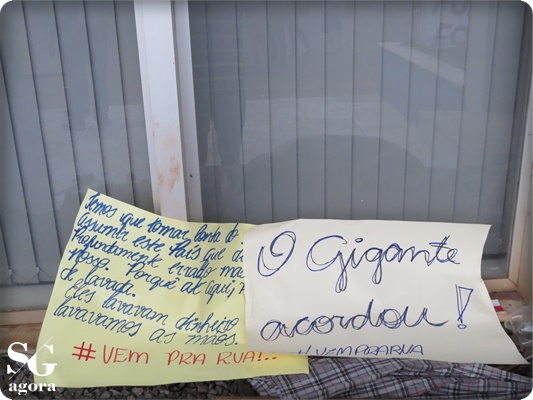 Temos que tomar conta do
assumir este País que
Profundamente errado mas
nosso. Porque até aqui,
de lavada.
eles lavavam dinheiro
lavavamos as mãos.
# VEM PRA RUA!..
O Gigante
acordou!
# VEMPRARUA
SG
agora